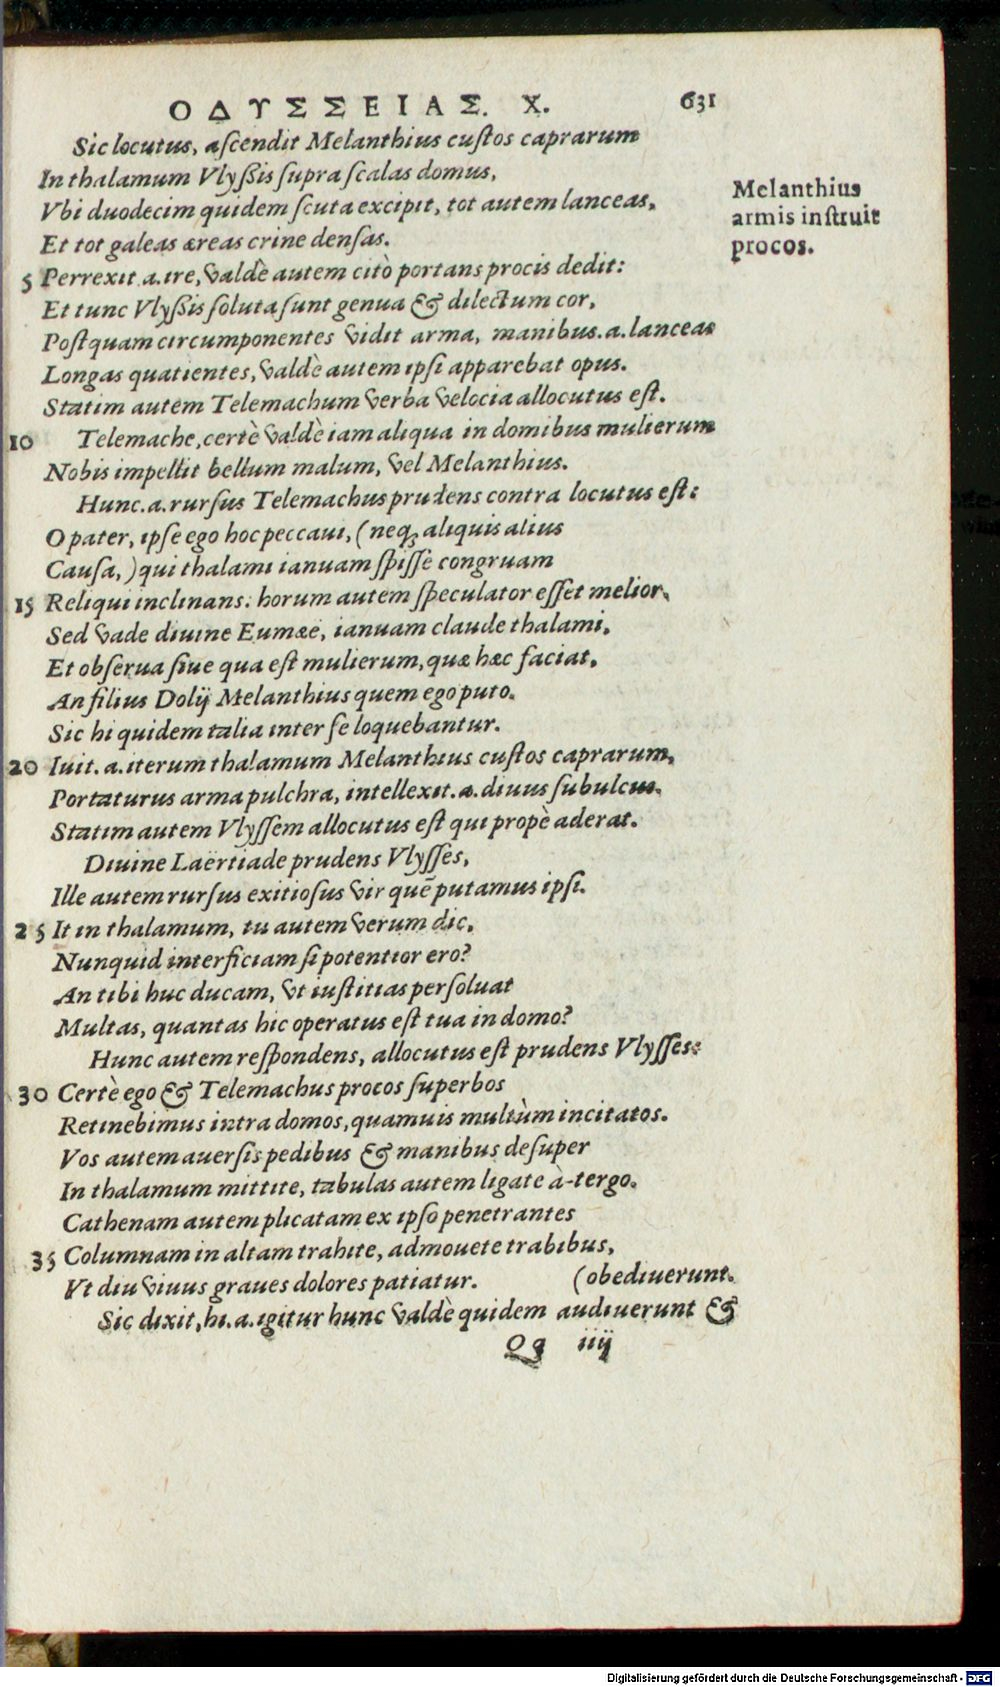 ΟΔΥΣΣΕΙΑΣ. Χ. 631
Sic locutus, ascendit Melanthius custos caprarum
In thalamum Vlyssis supra scalas domus,
Vbi duodecim quidem scuta excipit, tot autem lanceas,
Et tot galeas æreas crine densas.
5 Perrexit .a. ire, valdè autem citò portans procis dedit:
Et tunc Vlyssis soluta sunt genua & dilectum cor,
Postquam circumponentes vidit arma, manibus .a. lanceas
Longas quatientes, valdè autem ipsi apparebat opus.
Statim autem Telemachum verba velocia allocutus est.
10 Telemache, certè valdè iam aliqua in domibus mulierum
Nobis impellit bellum malum, vel Melanthius.
Hunc .a. rursus Telemachus prudens contra locutus est:
O pater, ipse ego hoc peccaui, (neq; aliquis alius
Causa,) qui thalami ianuam spissè congruam
15 Reliqui inclinans: horum autem speculator esset melior.
Sed vade diuine Eumæe, ianuam claude thalami,
Et obserua siue qua est mulierum, quæ hæc faciat,
An filius Dolij Melanthius quem ego puto.
Sic hi quidem talia inter se loquebantur.
20 Iuit .a. iterum thalamum Melanthius custos caprarum,
Portaturus arma pulchra, intellexit .a. diuus subulcus.
Statim autem Vlyssem allocutus est qui propè aderat.
Diuine Laërtiade prudens Vlysses,
Ille autem rursus exitiosus vir quē putamus ipsi.
25 It in thalamum, tu autem verum dic,
Nunquid interficiam si potentior ero?
An tibi huc ducam, vt iustitias persoluat
Multas, quantas hic operatus est tua in domo?
Hunc autem respondens, allocutus est prudens Vlysses:
30 Certè ego & Telemachus procos superbos
Retinebimus intra domos, quamuis multùm incitatos.
Vos autem auersis pedibus & manibus desuper
In thalamum mittite, tabulas autem ligate à-tergo.
Cathenam autem plicatam ex ipso penetrantes
35 Columnam in altam trahite, admouete trabibus,
Vt diu viuus graues dolores patiatur. (obediuerunt.
Sic dixit, hi .a. igitur hunc valdè quidem audiuerunt &
Qq iiij
Melanthius
armis instruit
procos.
Digitalisierung gefördert durch die Deutsche Forschungsgemeinschaft - DFG